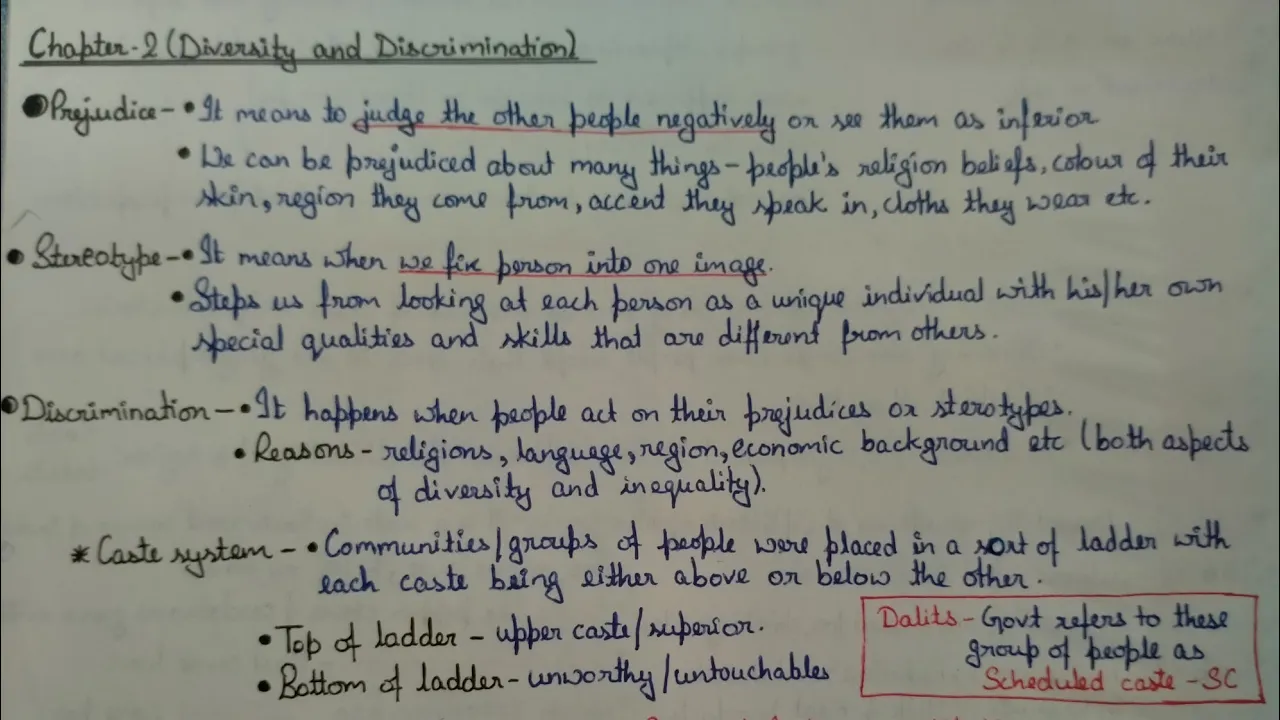 Chapter-2 (Diversity and Discrimination)
Prejudice - • It means to judge the other people negatively or see them as inferior
• We can be prejudiced about many things - people's religion beliefs, colour of their
skin, region they come from, accent they speak in, cloths they wear etc.
• Stereotype - • It means when we fix person into one image.
• Stops us from looking at each person as a unique individual with his/her own
special qualities and skills that are different from others.
Discrimination - • It happens when people act on their prejudices or sterotypes.
• Reasons - religions, language, region, economic background etc (both aspects
of diversity and inequality).
* Caste system - • Communities/groups of people were placed in a sort of ladder with
each caste being either above or below the other.
• Top of ladder - upper caste/superior.
• Bottom of ladder - unworthy/untouchables
Dalits - Govt refers to these
group of people as
Scheduled caste - SC